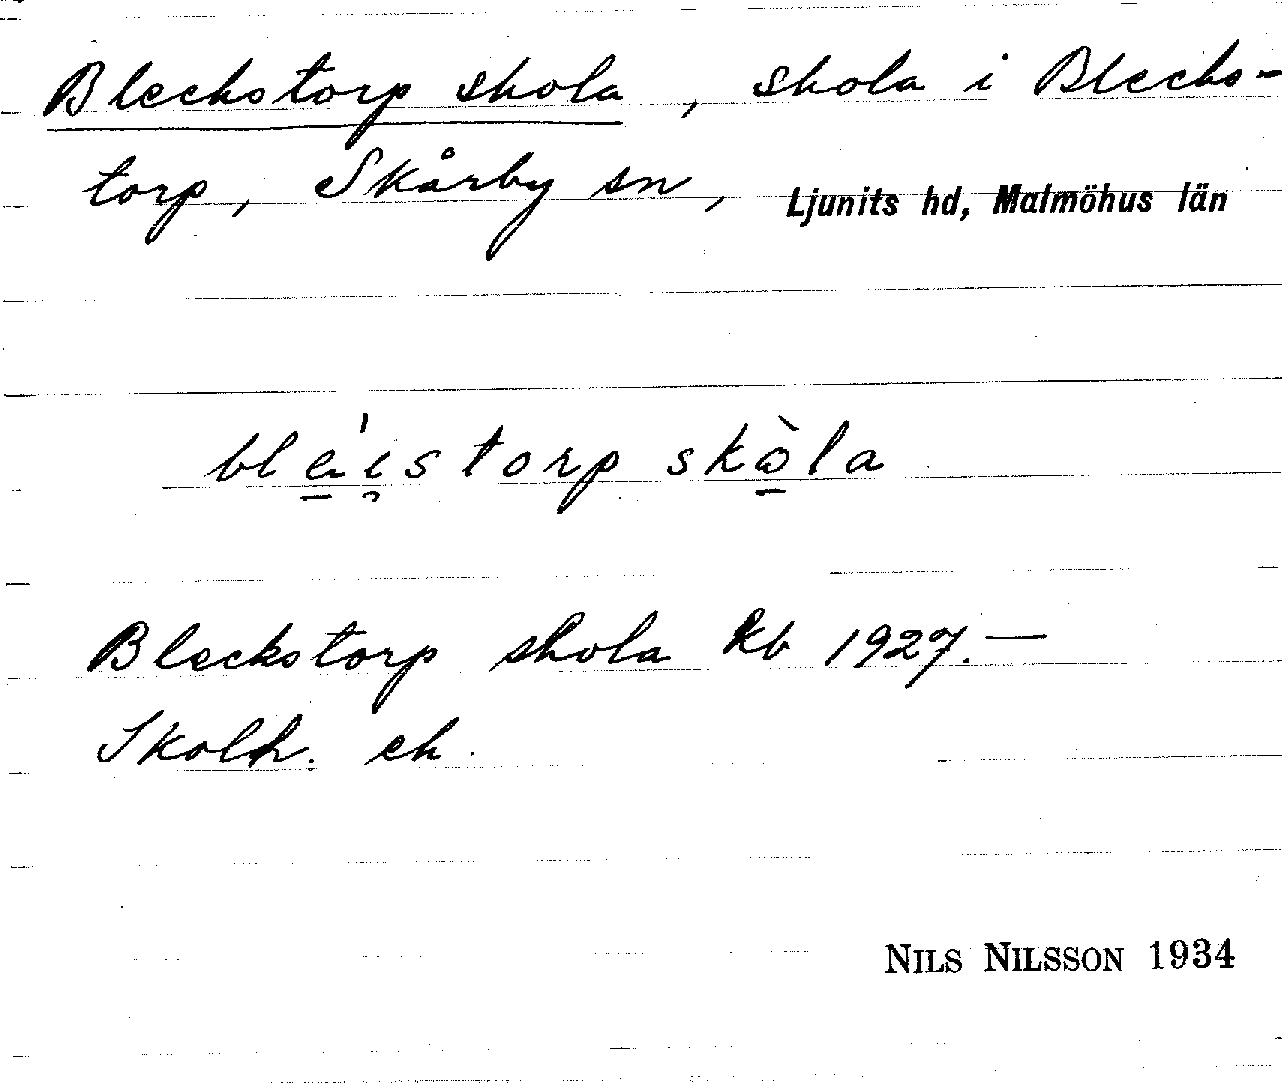 Bleckstorp skola, skola i Blecks-
torp, Skårby sn, Ljunits hd, Malmöhus län
bla̱í̯storp skò̱la
Bleckstorp skola kb 1927.—
Skolh. ek.
NILS NILSSON 1934